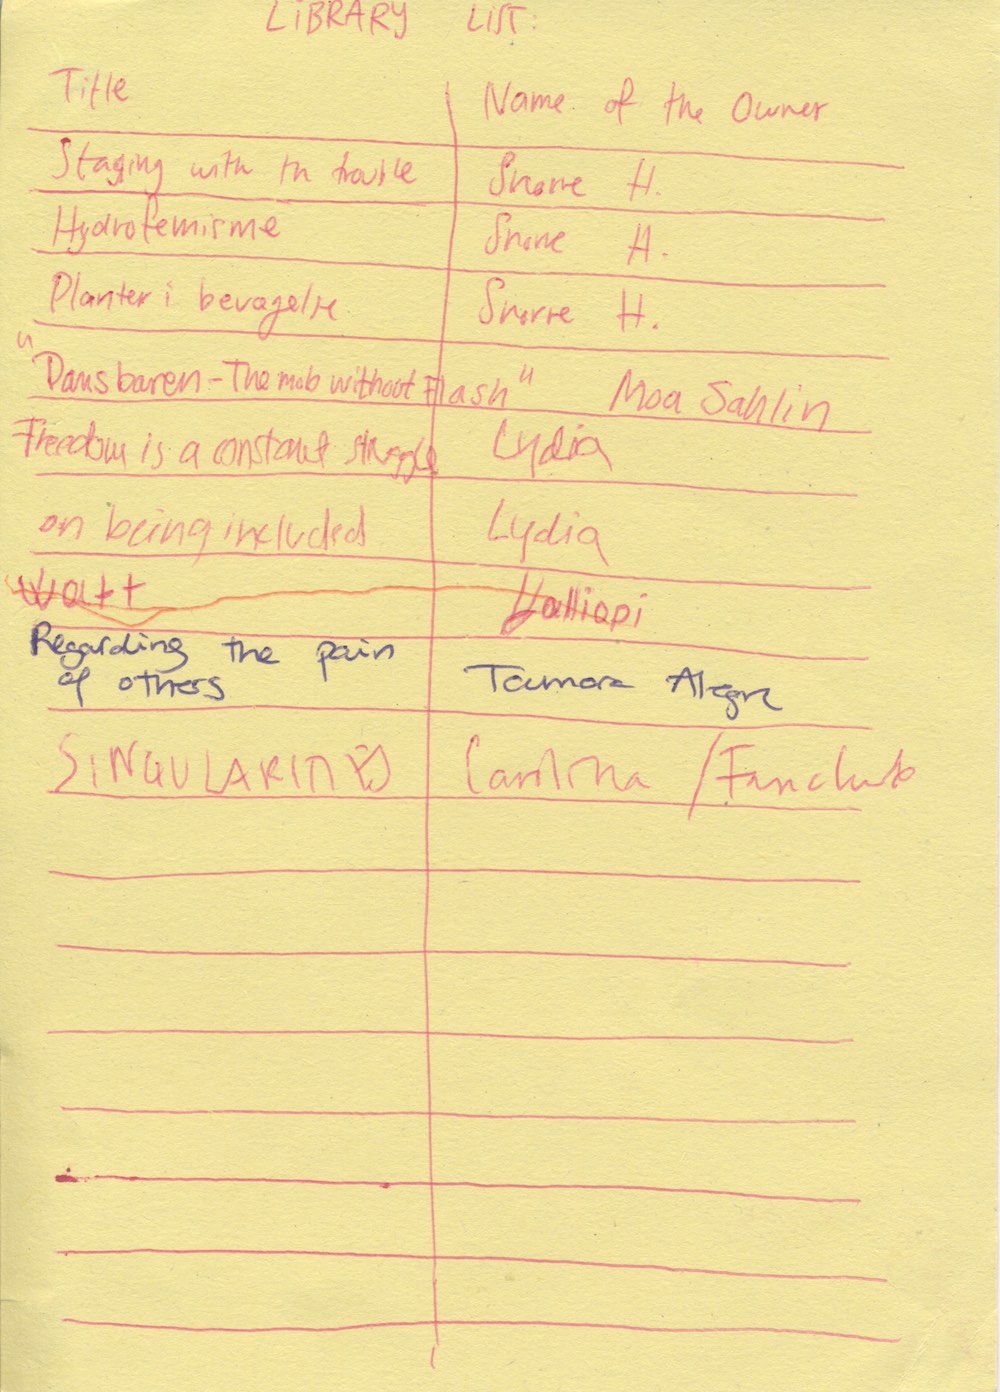 LiBRARY LIST:
Title Name of the Owner
Staging with th trouble Snorre H.
Hydrofemisme Snorre H.
Planter i bevagelse Snorre H.
"Dansbaren - The mob without Flash" Moa Sahlin
Freedom is a constant struggle Lydia
on being included Lydia
Kalliopi
Regarding the pain
of others Tamara Alegre
SiNGULARITIES Carolina / Fanclub